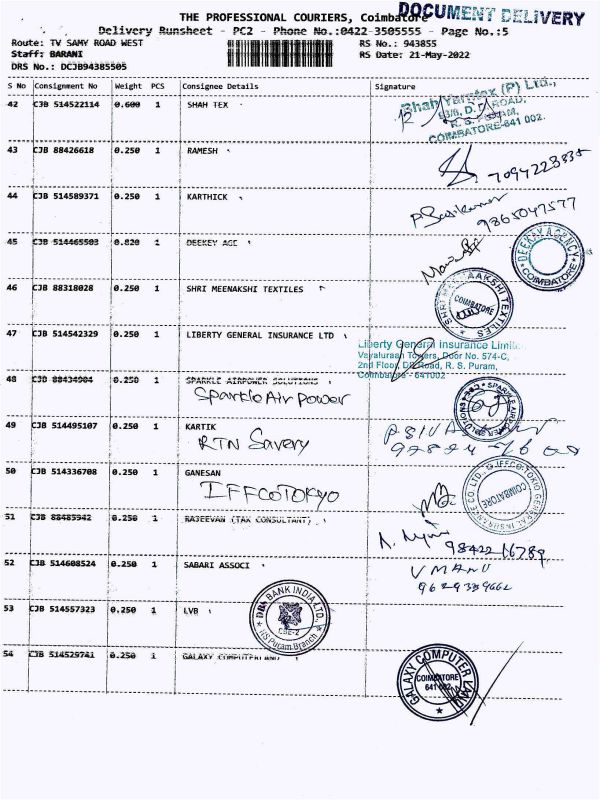 THE PROFESSIONAL COURIERS, Coimbatore
DOCUMENT DELIVERY
Delivery Runsheet - PC2 - Phone No.:0422-3505555 - Page No.:5
Route: TV SAMY ROAD WEST
RS No.: 943855
Staff: BARANI
RS Date: 21-May-2022
DRS No.: DCJB94385505
S No Consignment No Weight PCS Consignee Details Signature
42 CJB 514522114 0.600 1 SHAH TEX
Shah Yarntex (P) Ltd.,
R. S. PURAM,
COIMBATORE-641 002.
43 CJB 88426618 0.250 1 RAMESH
44 CJB 514589371 0.250 1 KARTHICK
9865047577
45 CJB 514465503 0.820 1 DEEKEY AGC
DEEKAY AGENCY
COIMBATORE
46 CJB 88318028 0.250 1 SHRI MEENAKSHI TEXTILES
COIMBATORE
47 CJB 514542329 0.250 1 LIBERTY GENERAL INSURANCE LTD
Liberty General Insurance Limited
Vayaturaan Towers, Door No. 574-C,
2nd Floor, DB Road, R. S. Puram,
Coimbatore - 641002
48 CJB 88434904 0.250 1 SPARKLE AIRPOWER SOLUTIONS
Sparkle Air Power
49 CJB 514495107 0.250 1 KARTIK
RTN Savery
50 CJB 514336708 0.250 1 GANESAN
IFFCO TOKYO
IFFCO TOKIO GENERAL INSURANCE CO. LTD.
COIMBATORE
51 CJB 88485942 0.250 1 RAJEEVAN (TAX CONSULTANT)
98422 16789
52 CJB 514608524 0.250 1 SABARI ASSOCI
V MANU
53 CJB 514557323 0.250 1 LVB
DBS BANK INDIA LTD.
CBE-2
RS Puram Branch
54 CJB 514529741 0.250 1 GALAXY COMPUTERLAND
GALAXY COMPUTER LAND
COIMBATORE
641 002